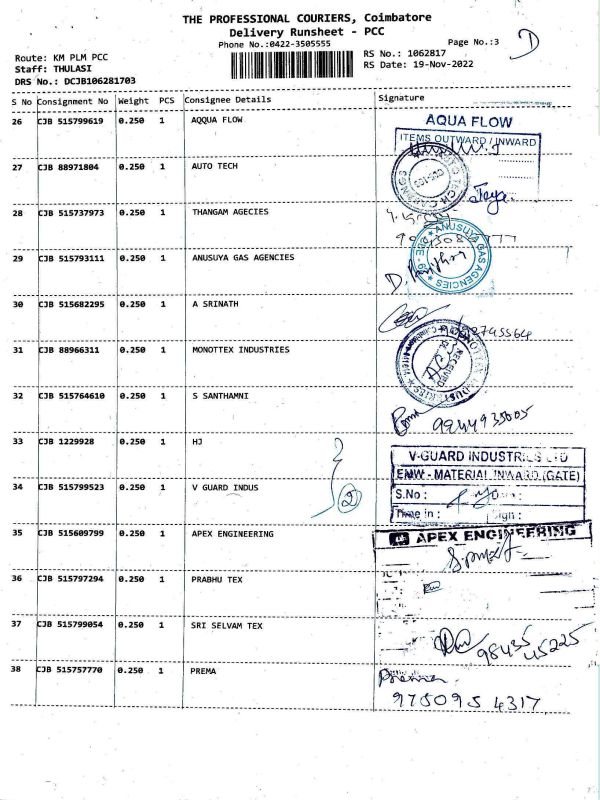 THE PROFESSIONAL COURIERS, Coimbatore
Delivery Runsheet - PCC
Phone No.:0422-3505555
Page No.:3
D
Route: KM PLM PCC
Staff: THULASI
DRS No.: DCJB106281703
RS No.: 1062817
RS Date: 19-Nov-2022
S No Consignment No Weight PCS Consignee Details Signature
26 CJB 515799619 0.250 1 AQQUA FLOW
AQUA FLOW
ITEMS OUTWARD / INWARD
27 CJB 88971804 0.250 1 AUTO TECH
28 CJB 515737973 0.250 1 THANGAM AGECIES
29 CJB 515793111 0.250 1 ANUSUYA GAS AGENCIES
ANUSUYA GAS AGENCIES
30 CJB 515682295 0.250 1 A SRINATH
31 CJB 88966311 0.250 1 MONOTTEX INDUSTRIES
RECEIVED
32 CJB 515764610 0.250 1 S SANTHAMNI
9944935005
33 CJB 1229928 0.250 1 HJ
V-GUARD INDUSTRIES LTD
EMW - MATERIAL INWARD (GATE)
34 CJB 515799523 0.250 1 V GUARD INDUS
2
S.No : Date :
Time in : Sign :
35 CJB 515609799 0.250 1 APEX ENGINEERING
APEX ENGINEERING
36 CJB 515797294 0.250 1 PRABHU TEX
37 CJB 515799054 0.250 1 SRI SELVAM TEX
98435 45225
38 CJB 515757770 0.250 1 PREMA
Prema
975095 4317